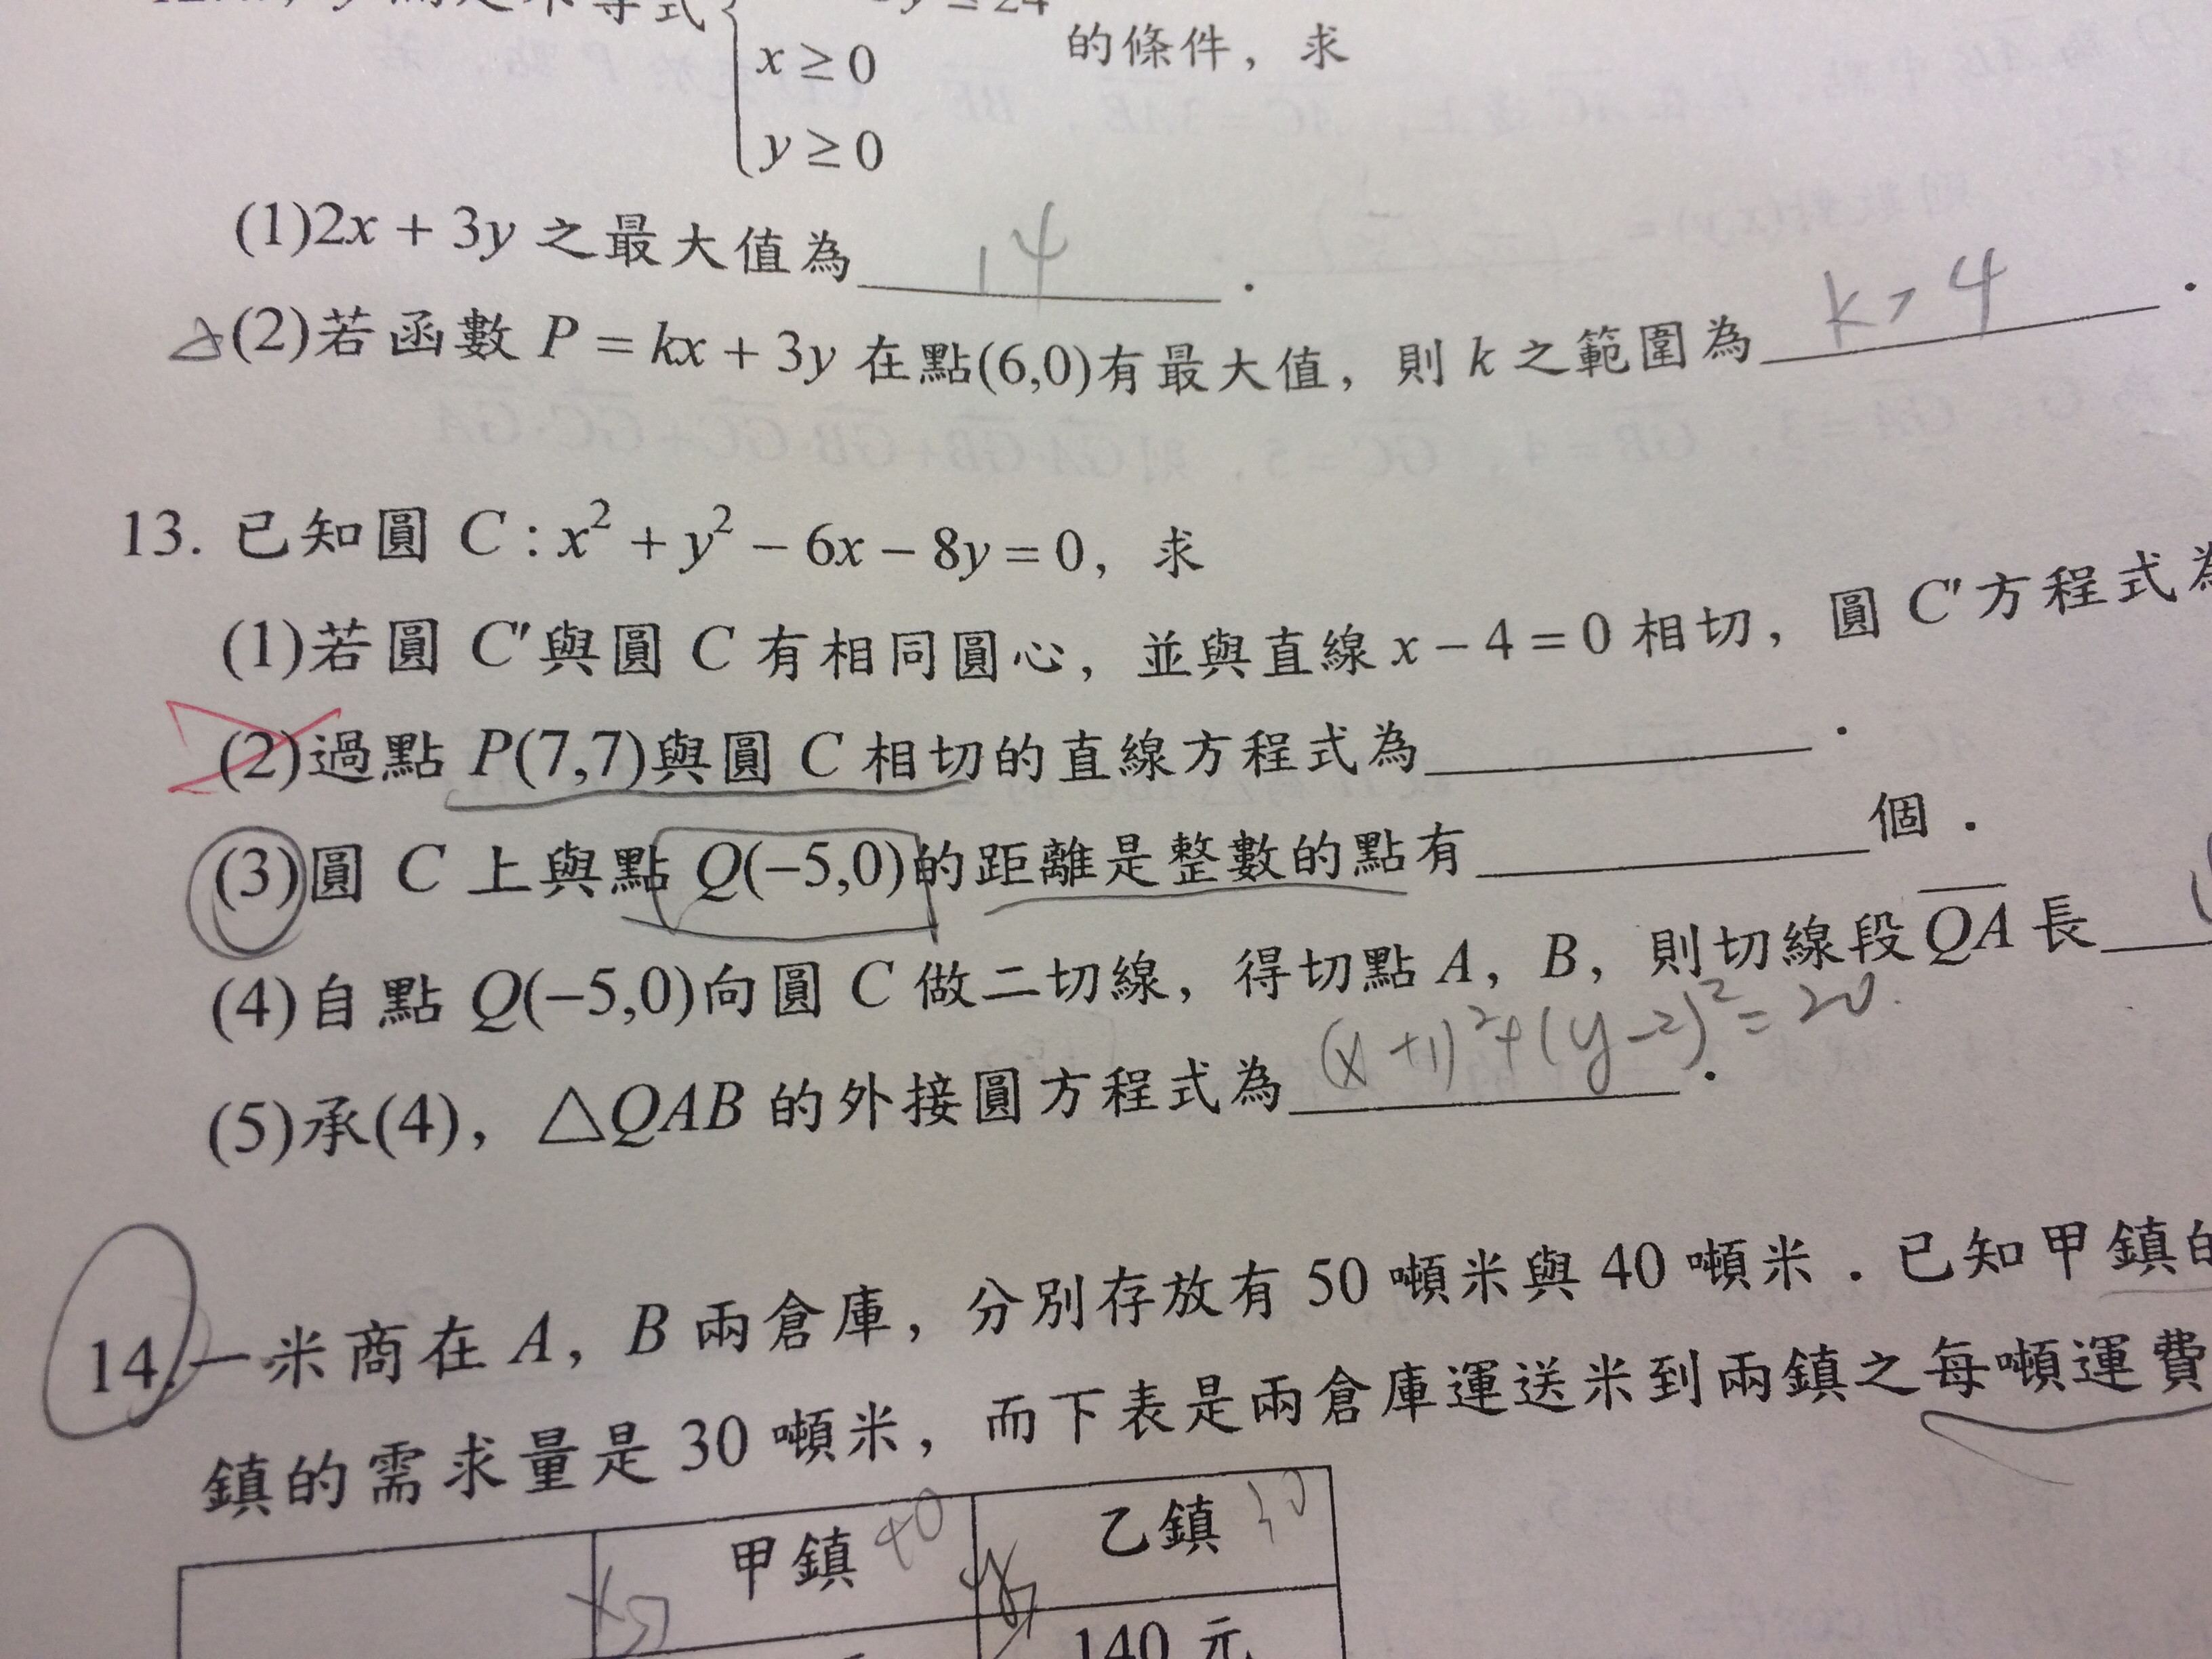 ≤ 24
x ≥ 0 的條件，求
y ≥ 0
(1)2x + 3y 之最大值為 14 .
△(2)若函數 P = kx + 3y 在點(6,0)有最大值，則 k 之範圍為 k > 4 .
13. 已知圓 C : x² + y² − 6x − 8y = 0，求
(1)若圓 C′與圓 C 有相同圓心，並與直線 x − 4 = 0 相切，圓 C′方程式為
(2)過點 P(7,7)與圓 C 相切的直線方程式為 .
(3)圓 C 上與點 Q(−5,0)的距離是整數的點有 個 .
(4)自點 Q(−5,0)向圓 C 做二切線，得切點 A，B，則切線段 QA 長
(5)承(4)，△QAB 的外接圓方程式為 (x+1)²+(y−2)²=20 .
14. 一米商在 A，B 兩倉庫，分別存放有 50 噸米與 40 噸米．已知甲鎮的
鎮的需求量是 30 噸米，而下表是兩倉庫運送米到兩鎮之每噸運費
甲鎮 乙鎮
140 元